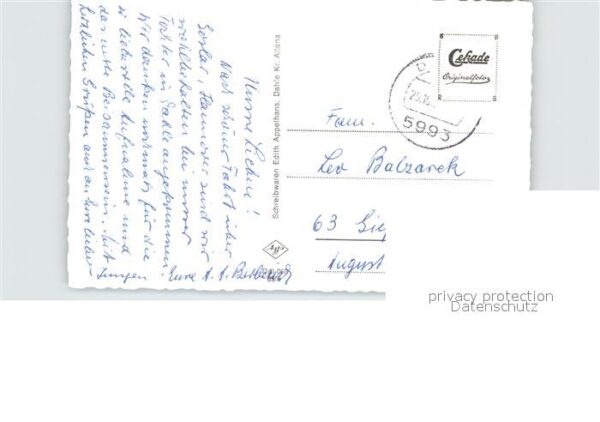 Unsre Lieben!
Nach schöner Fahrt über
Goslar, Hannover sind wir
wohlbehalten bei unsrer
Tochter in Dahle angekommen.
Wir danken nochmals für die
so liebevolle Aufnahme und
das nette Beisammensein. Mit
herzlichen Grüßen auch an Eure lieben
Jungen Eure
Schreibwaren Edith Appelhans, Dahle Kr. Altena
Cekade
Originalfoto
5993
Fam.
Leo Balzarek
63 Gie
August
privacy protection
Datenschutz